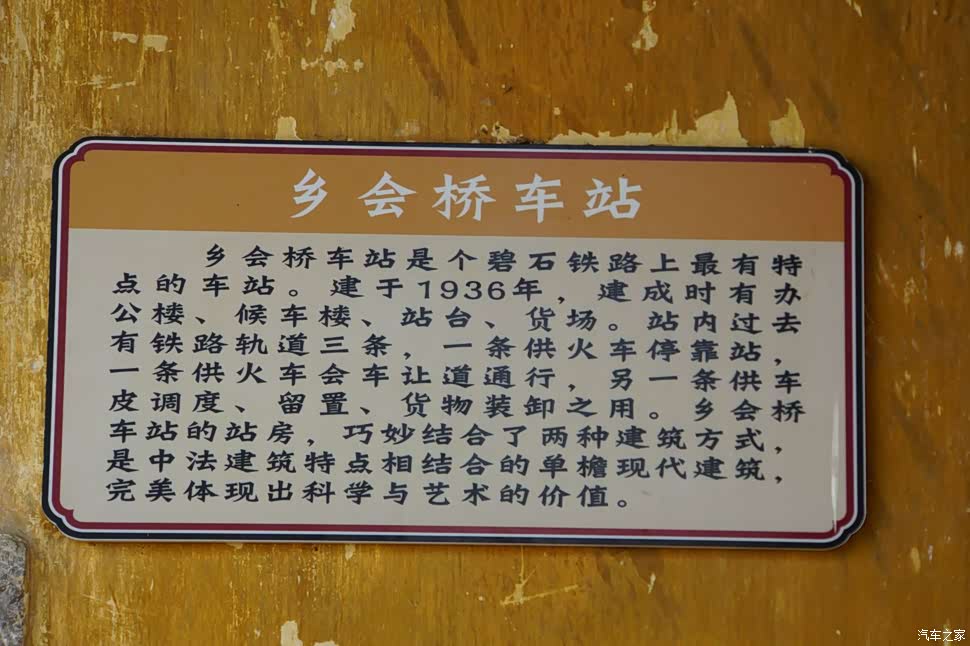 乡会桥车站
乡会桥车站是个碧石铁路上最有特
点的车站。建于1936年，建成时有办
公楼、候车楼、站台、货场。站内过去
有铁路轨道三条，一条供火车停靠站，
一条供火车会车让道通行，另一条供车
皮调度、留置、货物装卸之用。乡会桥
车站的站房，巧妙结合了两种建筑方式，
是中法建筑特点相结合的单檐现代建筑，
完美体现出科学与艺术的价值。
汽车之家